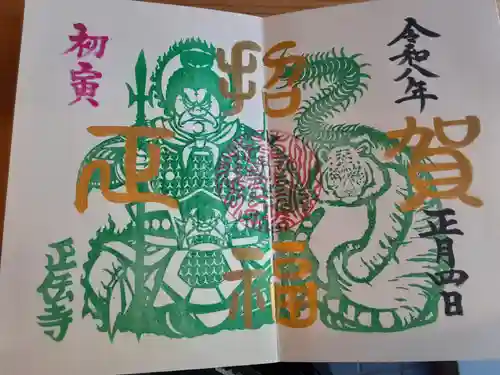 令和八年
正月四日
賀正
招福
初寅
正伝寺